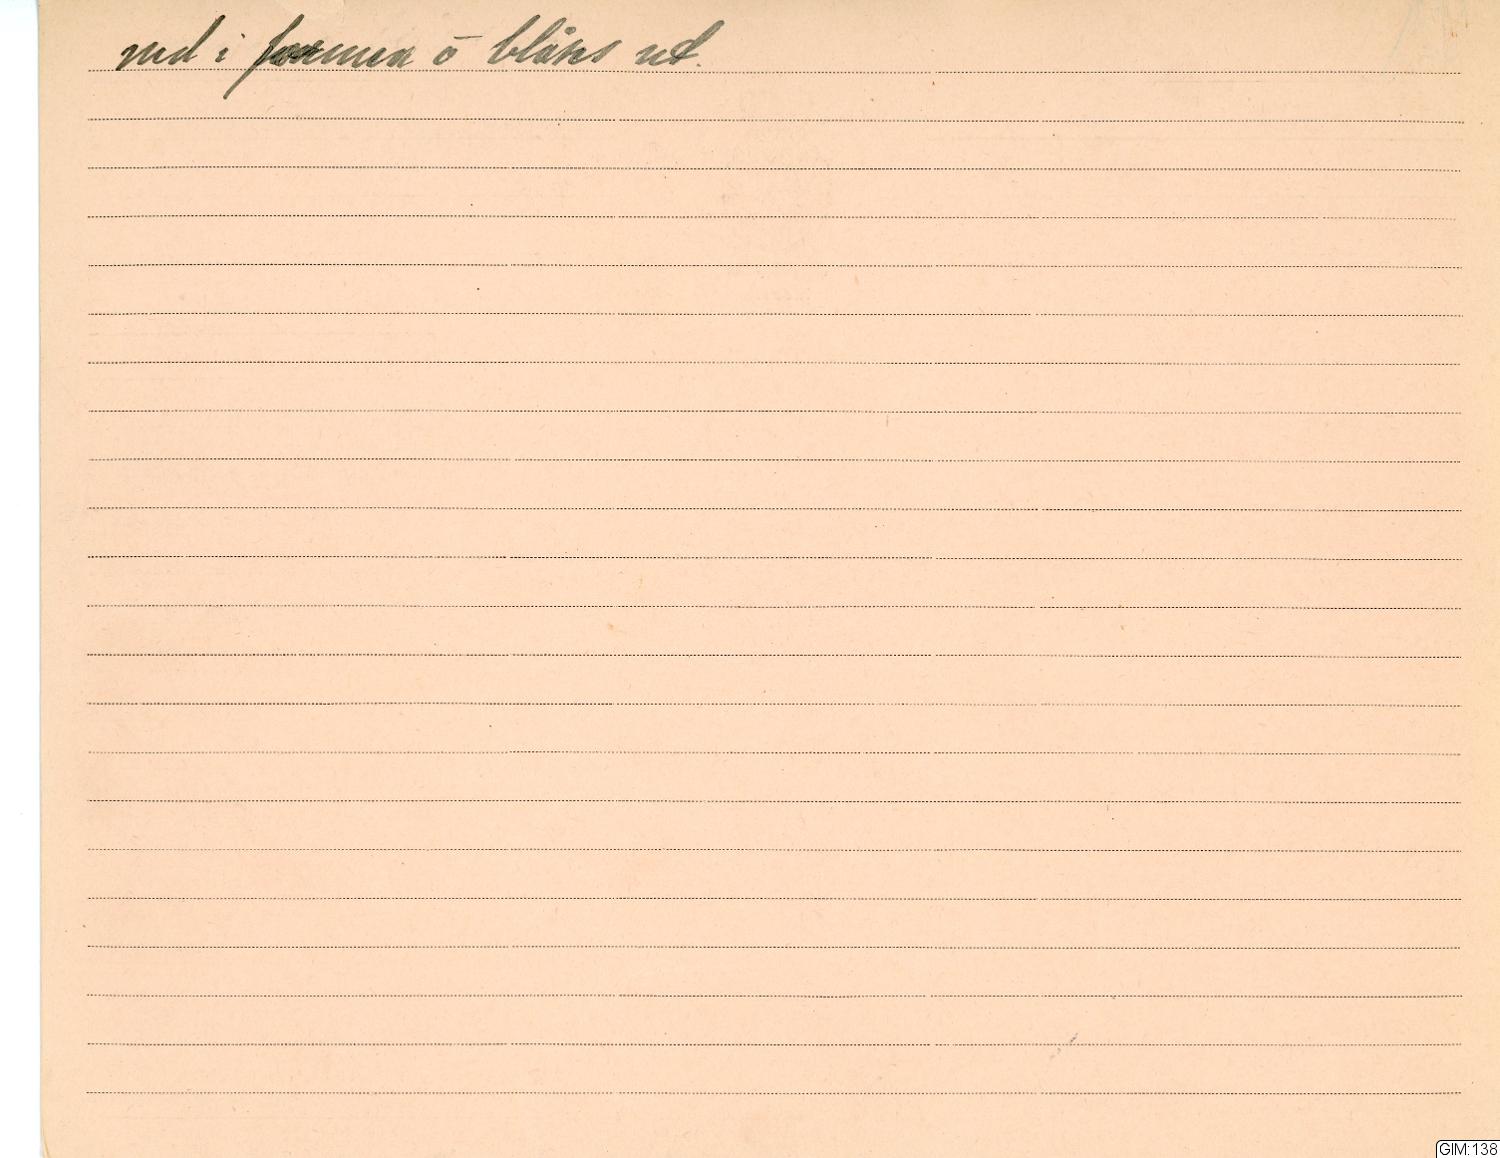 ned i formen ō blåses ut.
GIM:138